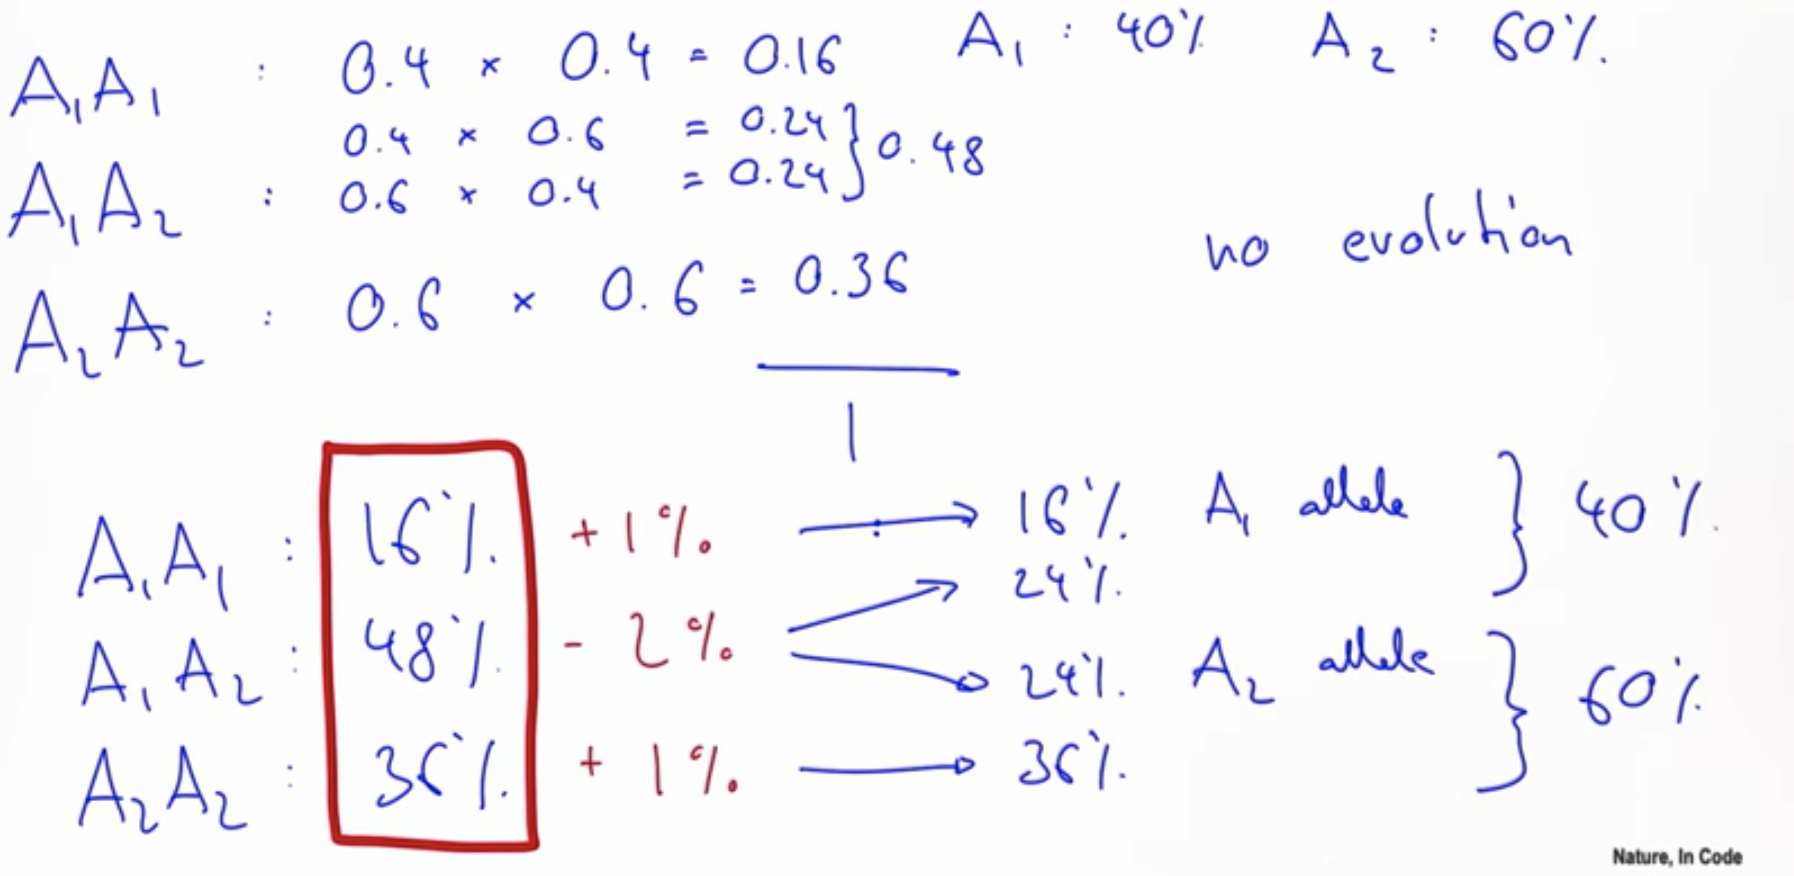 A₁A₁ : 0.4 × 0.4 = 0.16 A₁ : 40% A₂ : 60%.
0.4 × 0.6 = 0.24 } 0.48
A₁A₂ : 0.6 × 0.4 = 0.24
no evolution
A₂A₂ : 0.6 × 0.6 = 0.36
1
A₁A₁ : 16%. + 1%. → 16%. A₁ allele } 40%.
24%.
A₁A₂ : 48%. - 2%. → 24%. A₂ allele } 60%.
A₂A₂ : 36%. + 1%. → 36%.
Nature, In Code